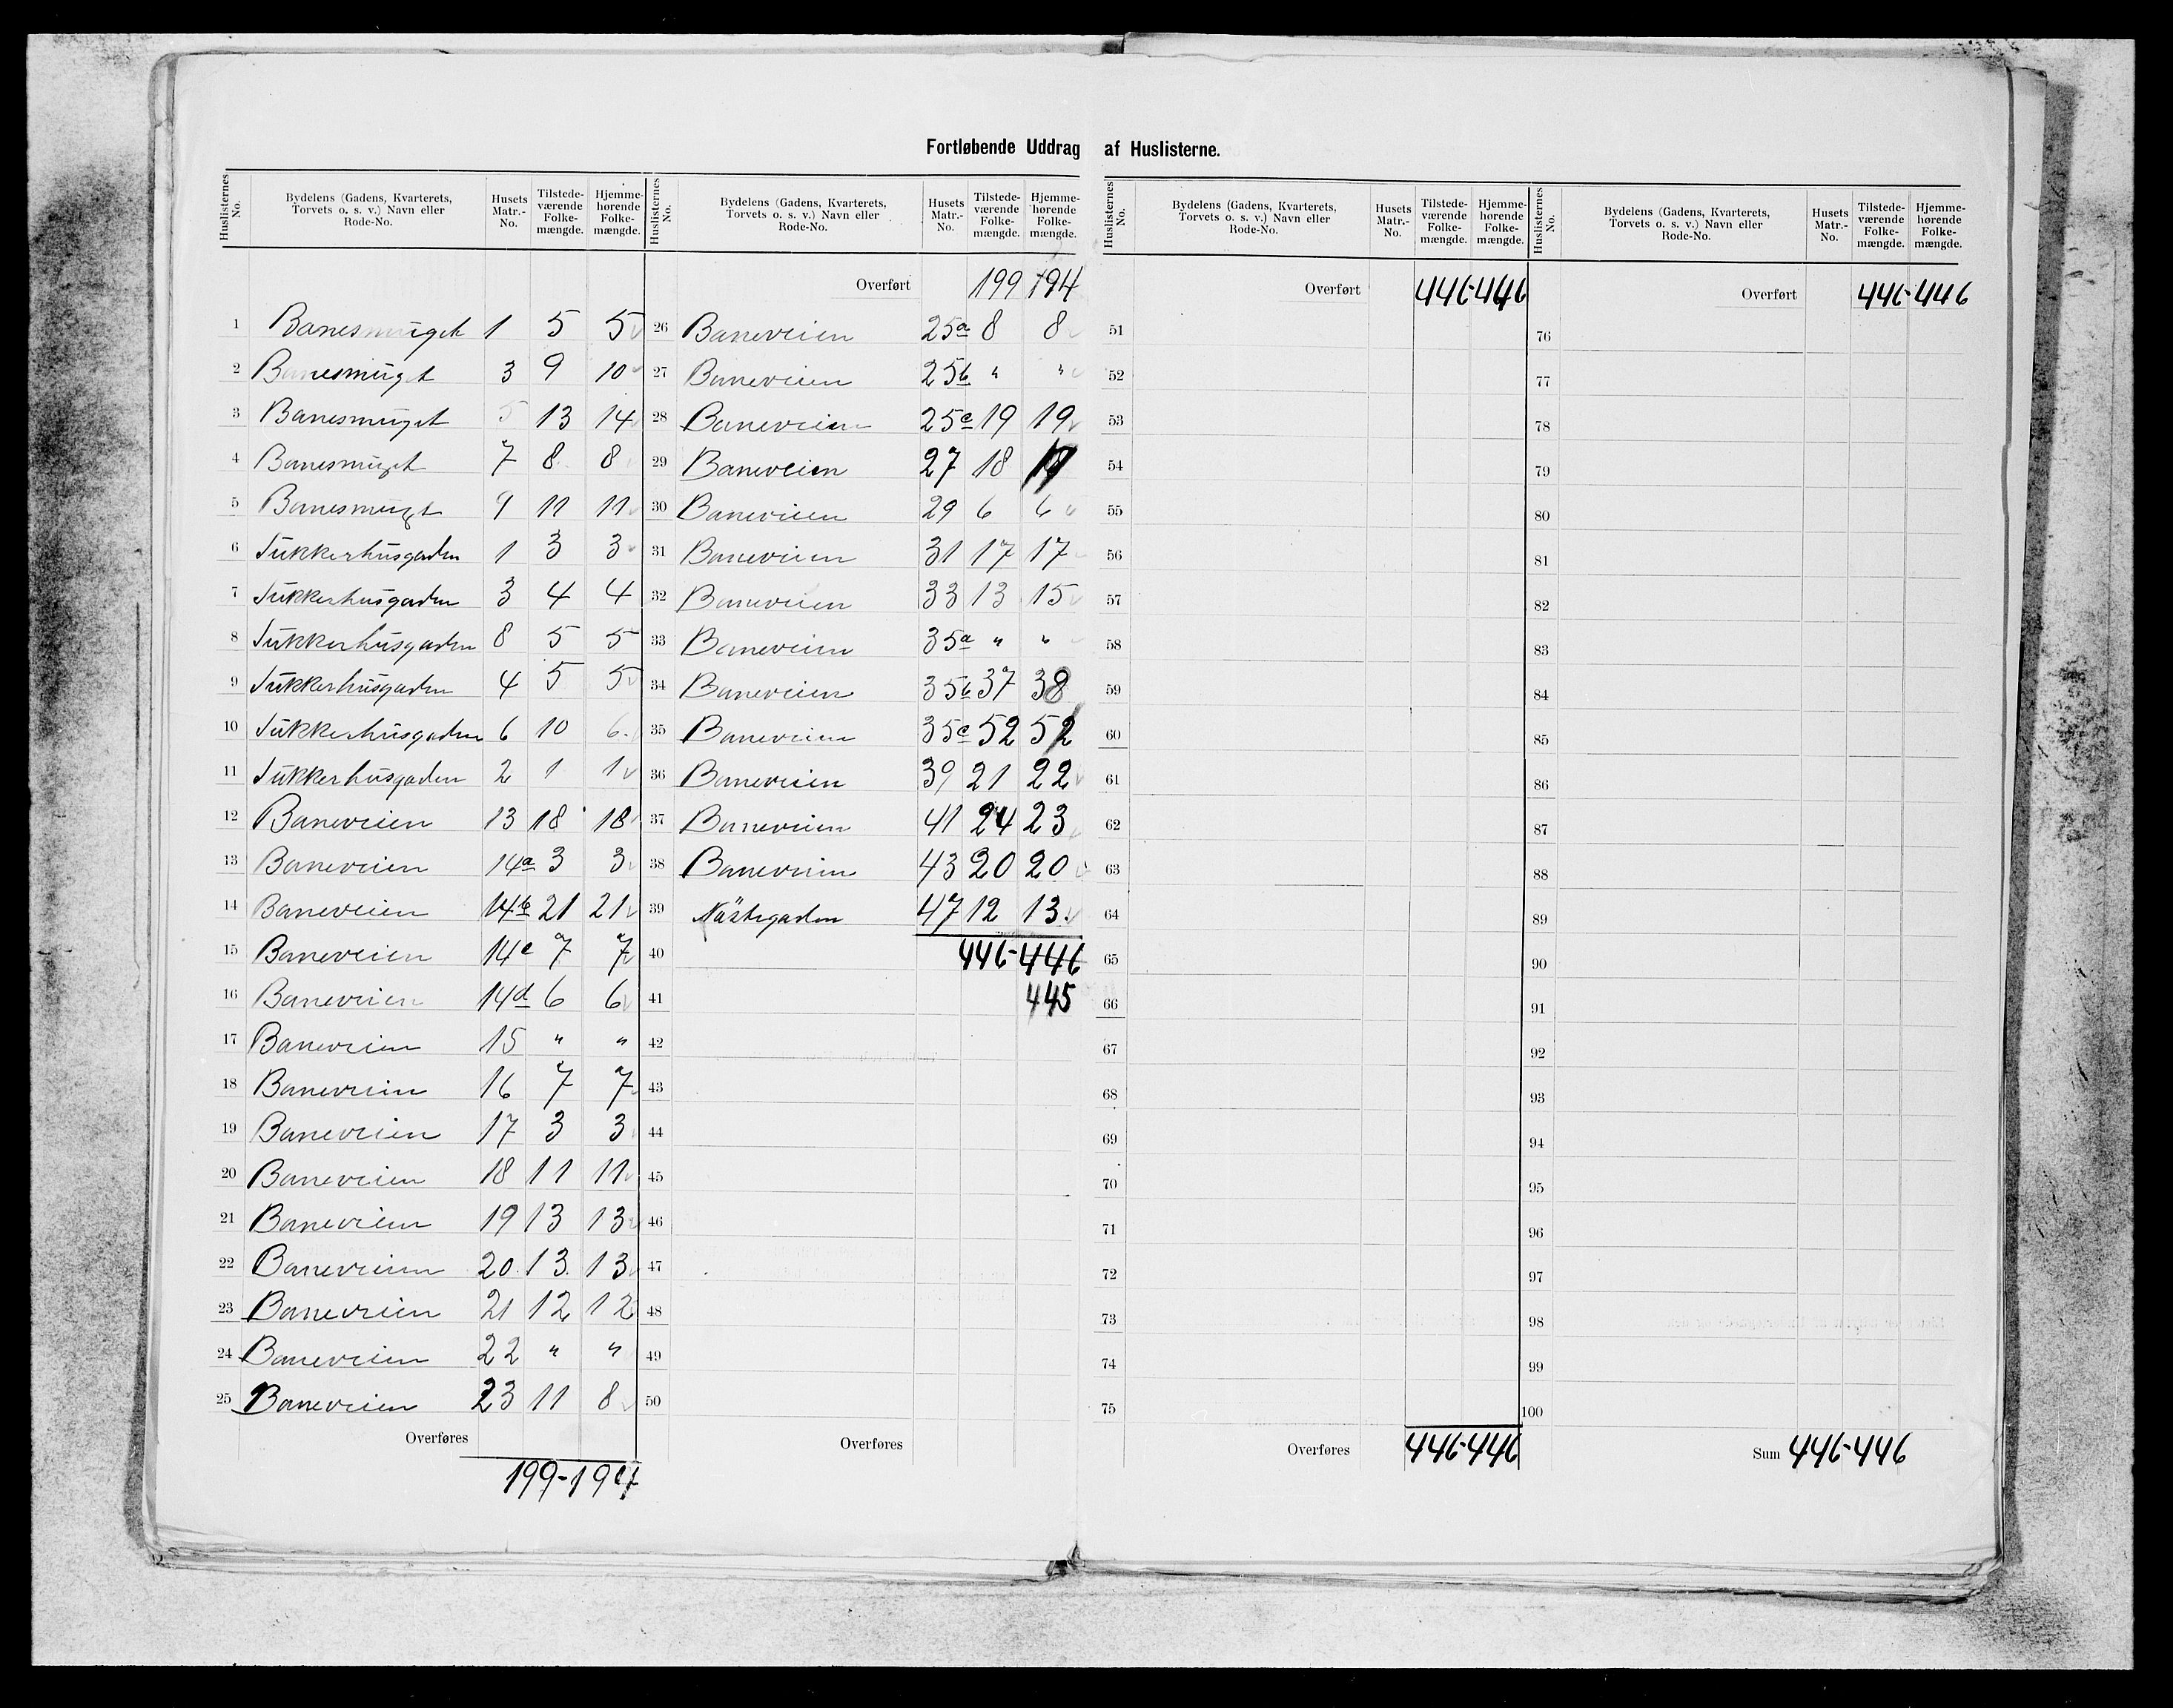 Fortløbende Uddrag af Huslisterne.
Huslisternes No. Bydelens (Gadens, Kvarterets, Torvets o. s. v.) Navn eller Rode-No. Husets Matr.-No. Tilstedeværende Folkemængde. Hjemmehørende Folkemængde.
1 Banesmuget 1 5 5
2 Banesmuget 3 9 10
3 Banesmuget 5 13 14
4 Banesmuget 7 8 8
5 Banesmuget 9 11 11
6 Sukkerhusgaden 1 3 3
7 Sukkerhusgaden 3 4 4
8 Sukkerhusgaden 8 5 5
9 Sukkerhusgaden 4 5 5
10 Sukkerhusgaden 6 10 6
11 Sukkerhusgaden 2 1 1
12 Baneveien 13 18 18
13 Baneveien 14a 3 3
14 Baneveien 14b 21 21
15 Baneveien 14c 7 7
16 Baneveien 14d 6 6
17 Baneveien 15 " "
18 Baneveien 16 7 7
19 Baneveien 17 3 3
20 Baneveien 18 11 11
21 Baneveien 19 13 13
22 Baneveien 20 13 13
23 Baneveien 21 12 12
24 Baneveien 22 " "
25 Baneveien 23 11 8
Overføres
199-194
Huslisternes No. Bydelens (Gadens, Kvarterets, Torvets o. s. v.) Navn eller Rode-No. Husets Matr.-No. Tilstedeværende Folkemængde. Hjemmehørende Folkemængde.
Overført 199 194
26 Baneveien 25a 8 8
27 Baneveien 25b " "
28 Baneveien 25c 19 19
29 Baneveien 27 18
30 Baneveien 29 6 6
31 Baneveien 31 17 17
32 Baneveien 33 13 15
33 Baneveien 35a " "
34 Baneveien 35b 37 38
35 Baneveien 35c 52 52
36 Baneveien 39 21 22
37 Baneveien 41 24 23
38 Baneveien 43 20 20
39 Nöstegaden 47 12 13
40 446-446
41 445
42
43
44
45
46
47
48
49
50
Overføres
Huslisternes No. Bydelens (Gadens, Kvarterets, Torvets o. s. v.) Navn eller Rode-No. Husets Matr.-No. Tilstedeværende Folkemængde. Hjemmehørende Folkemængde.
Overført 446-446
51
52
53
54
55
56
57
58
59
60
61
62
63
64
65
66
67
68
69
70
71
72
73
74
75
Overføres 446-446
Huslisternes No. Bydelens (Gadens, Kvarterets, Torvets o. s. v.) Navn eller Rode-No. Husets Matr.-No. Tilstedeværende Folkemængde. Hjemmehørende Folkemængde.
Overført 446-446
76
77
78
79
80
81
82
83
84
85
86
87
88
89
90
91
92
93
94
95
96
97
98
99
100
Sum 446-446